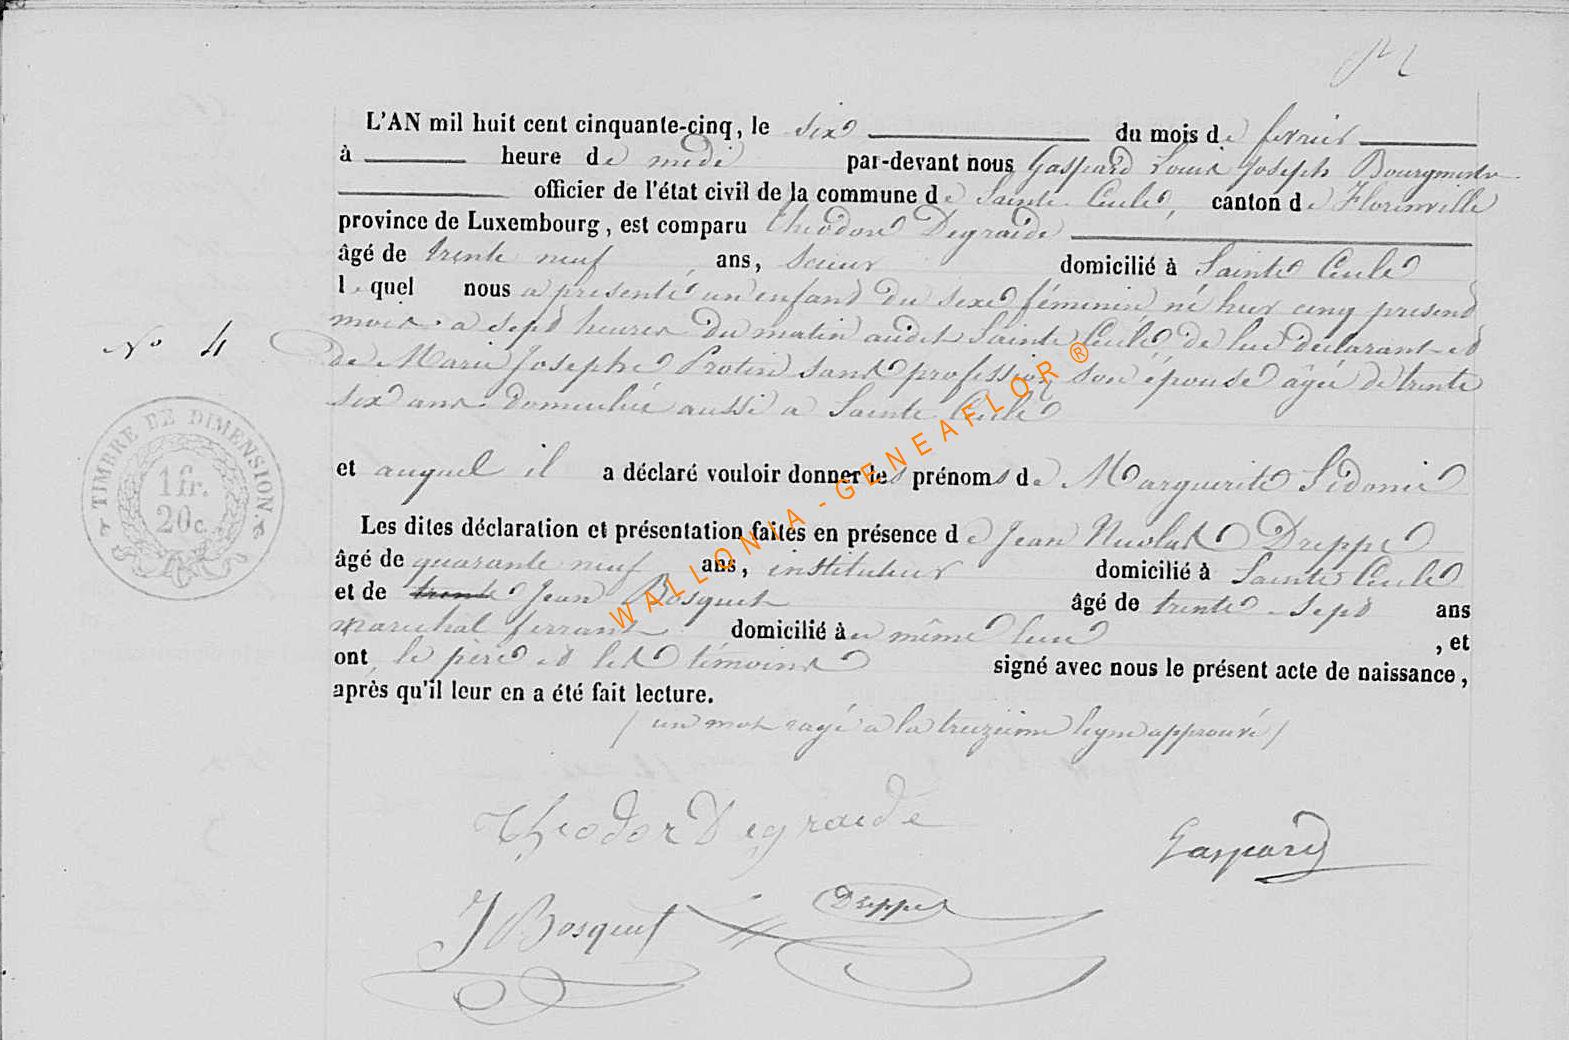 L'AN mil huit cent cinquante-cinq, le six du mois de fevrier
à heure de midi par-devant nous Gaspard Louis Joseph Bourgmestre
officier de l'état civil de la commune de Sainte Cecile, canton de Florenville
province de Luxembourg, est comparu théodore Degraide
âgé de trente neuf ans, scieur domicilié à Sainte Cecile
lequel nous a presenté un enfant du sexe féminin né hier cinq present
mois a sept heures du matin audit Sainte Cecile de lui déclarant et
de Marie Josephe Protin sans profession son épouse âgée de trente
six ans domiciliée aussi a Sainte Cecile
N° 4
TIMBRE DE DIMENSION
1 fr.
20 c.
et auquel il a déclaré vouloir donner les prénoms de Marguerite Sidonie
Les dites déclaration et présentation faites en présence de Jean Nicolas Dreppe
âgé de quarante neuf ans, instituteur domicilié à Sainte Cecile
et de trente Jean Bosquet âgé de trente sept ans
marechal ferrant domicilié à ce même lieu, et
ont le père et les témoins signé avec nous le présent acte de naissance,
après qu'il leur en a été fait lecture.
/ un mot rayé a la treizieme ligne approuvé /
Theodor Degraide
Gaspard
J Bosquet Dreppe
WALLONIA - GENEAFLOR ®